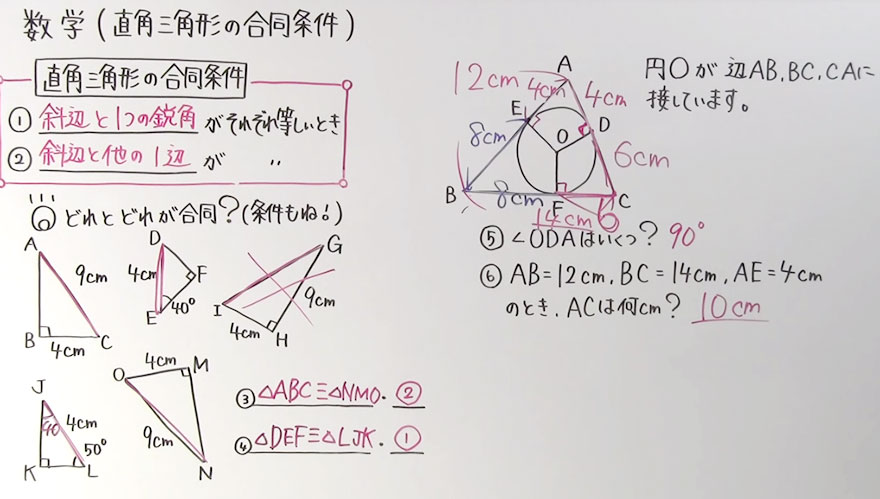 数学(直角三角形の合同条件)
直角三角形の合同条件
① 斜辺と1つの鋭角がそれぞれ等しいとき
② 斜辺と他の1辺が 〃
どれとどれが合同?(条件もね!)
A
9cm
B
4cm
C
D
4cm
F
E
40°
G
I
9cm
4cm
H
J
40
4cm
50°
K
L
4cm
M
O
9cm
N
③ △ABC≡△NMO. ②
④ △DEF≡△LJK. ①
円Oが辺AB,BC,CAに
接しています。
A
12cm
4cm
4cm
E
O
D
8cm
6cm
B
8cm
F
C
14cm
6
⑤ ∠ODAはいくつ? 90°
⑥ AB=12cm, BC=14cm, AE=4cm
のとき, ACは何cm? 10cm